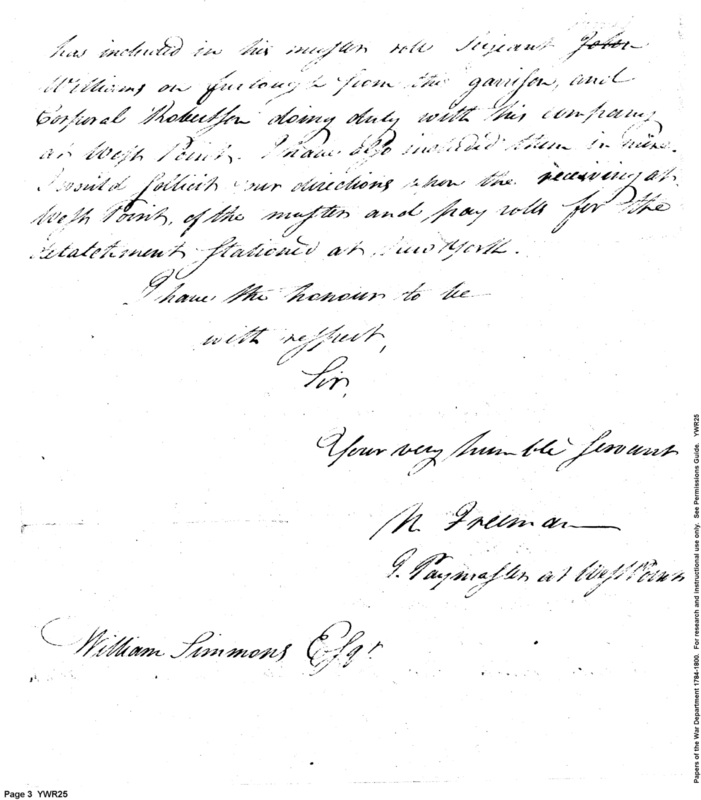 has included in his muster roll Serjeant John
Williams on furlough from the garrison, and
Corporal Robertson doing duty with this company
at West Point. I have also included them in mine.
I would sollicit your directions upon the receiving at
West Point, of the muster and pay rolls for the
detatchment stationed at New York.
I have the honour to be
with respect,
Sir,
Your very humble Servant
N Freeman
P. Paymaster at West Point
William Simmons Esqr.
Page 3 YWR25
Papers of the War Department 1784-1800. For research and instructional use only. See Permissions Guide. YWR25